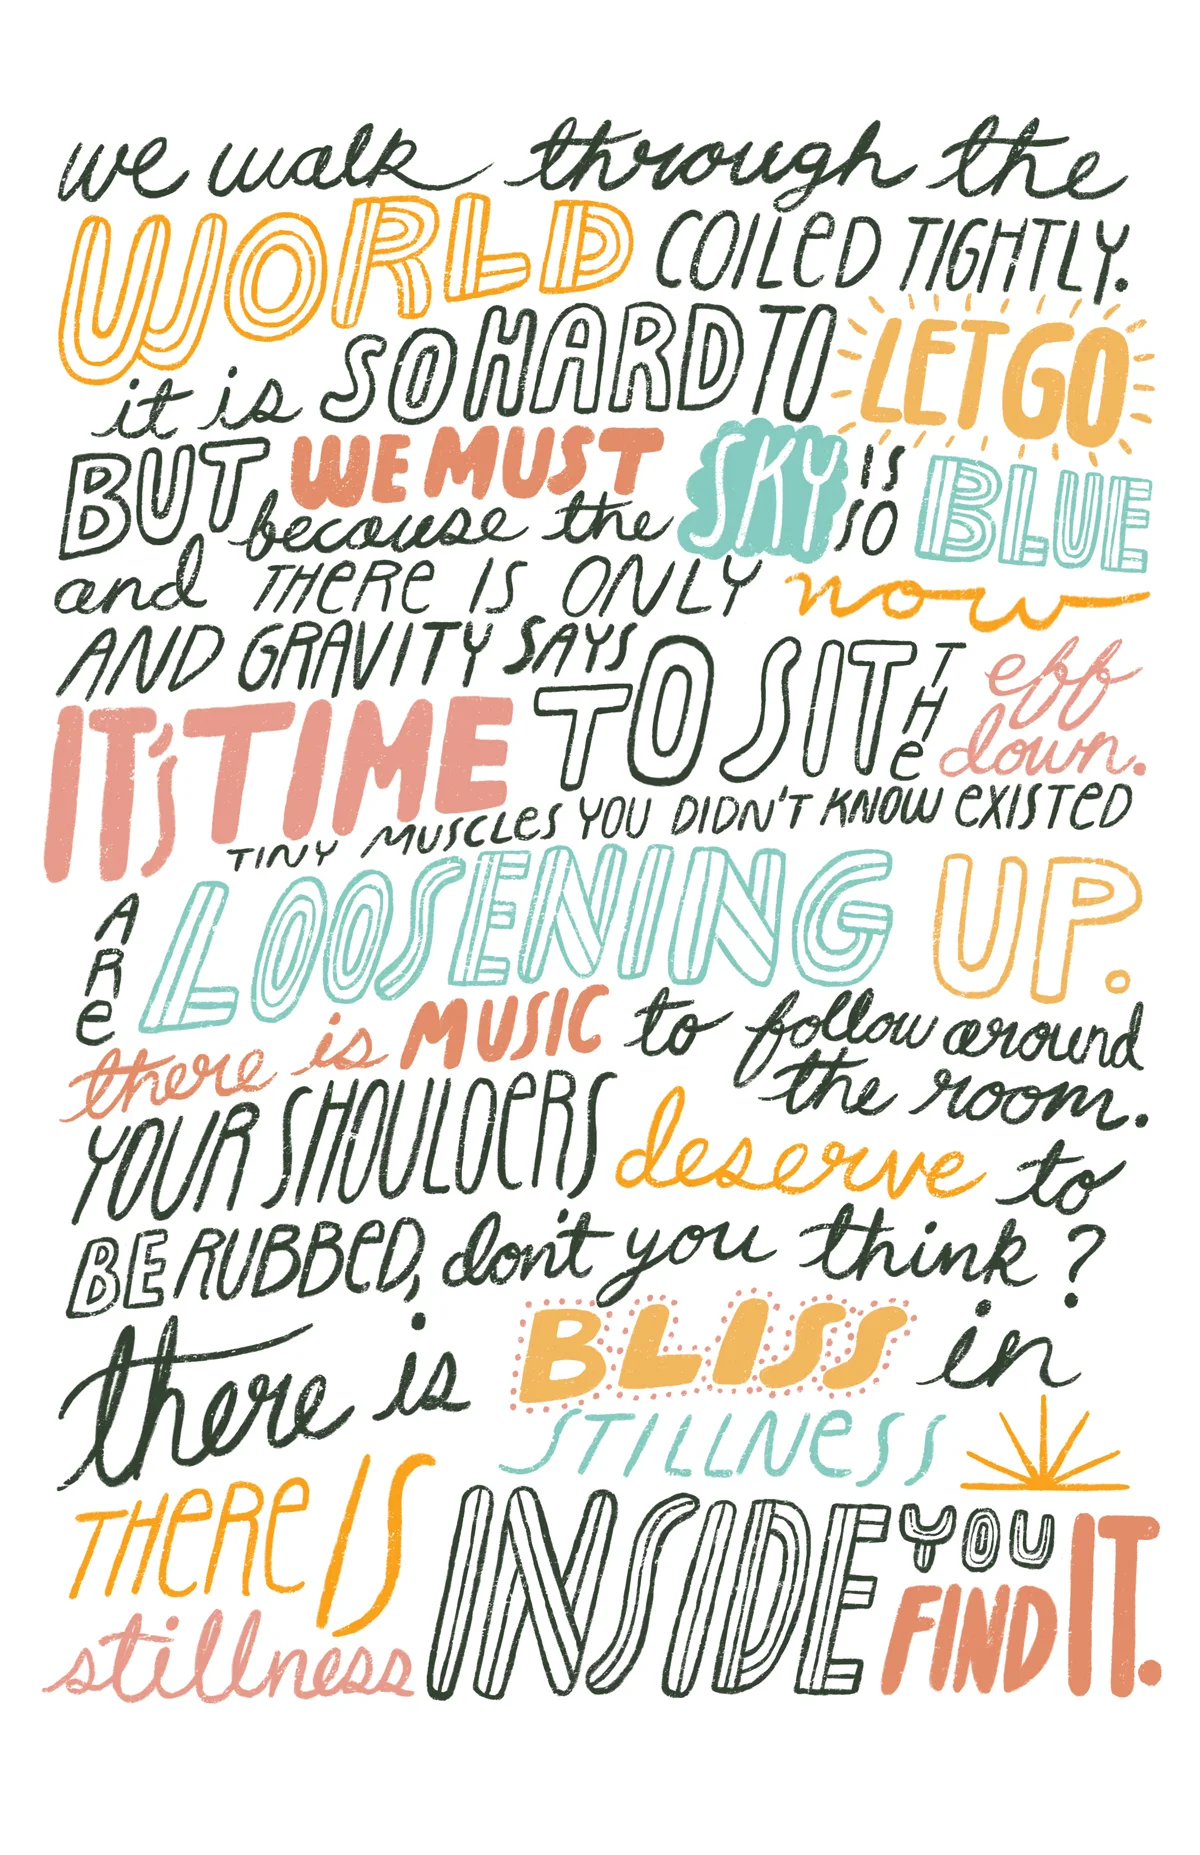 we walk through the
WORLD COILeD TIGHTLY.
it is SO HARD TO LET GO
BUT WE MUST
because the SKY IS SO BLUE
and THeRe IS ONLY now
AND GRAVITY SAYS
IT'S TIME TO SIT THe eff down.
TINY MUSCLeS YOU DIDN'T KNOW eXISTED
ARe LOOSENING UP.
there is MUSIC to follow around
the room.
YOUR SHOULDeRS deserve to
BE RUBBeD, don't you think?
there is BLISS in
STILLNeSS
THeRe IS
stillness INSIDE YOU
FIND IT.